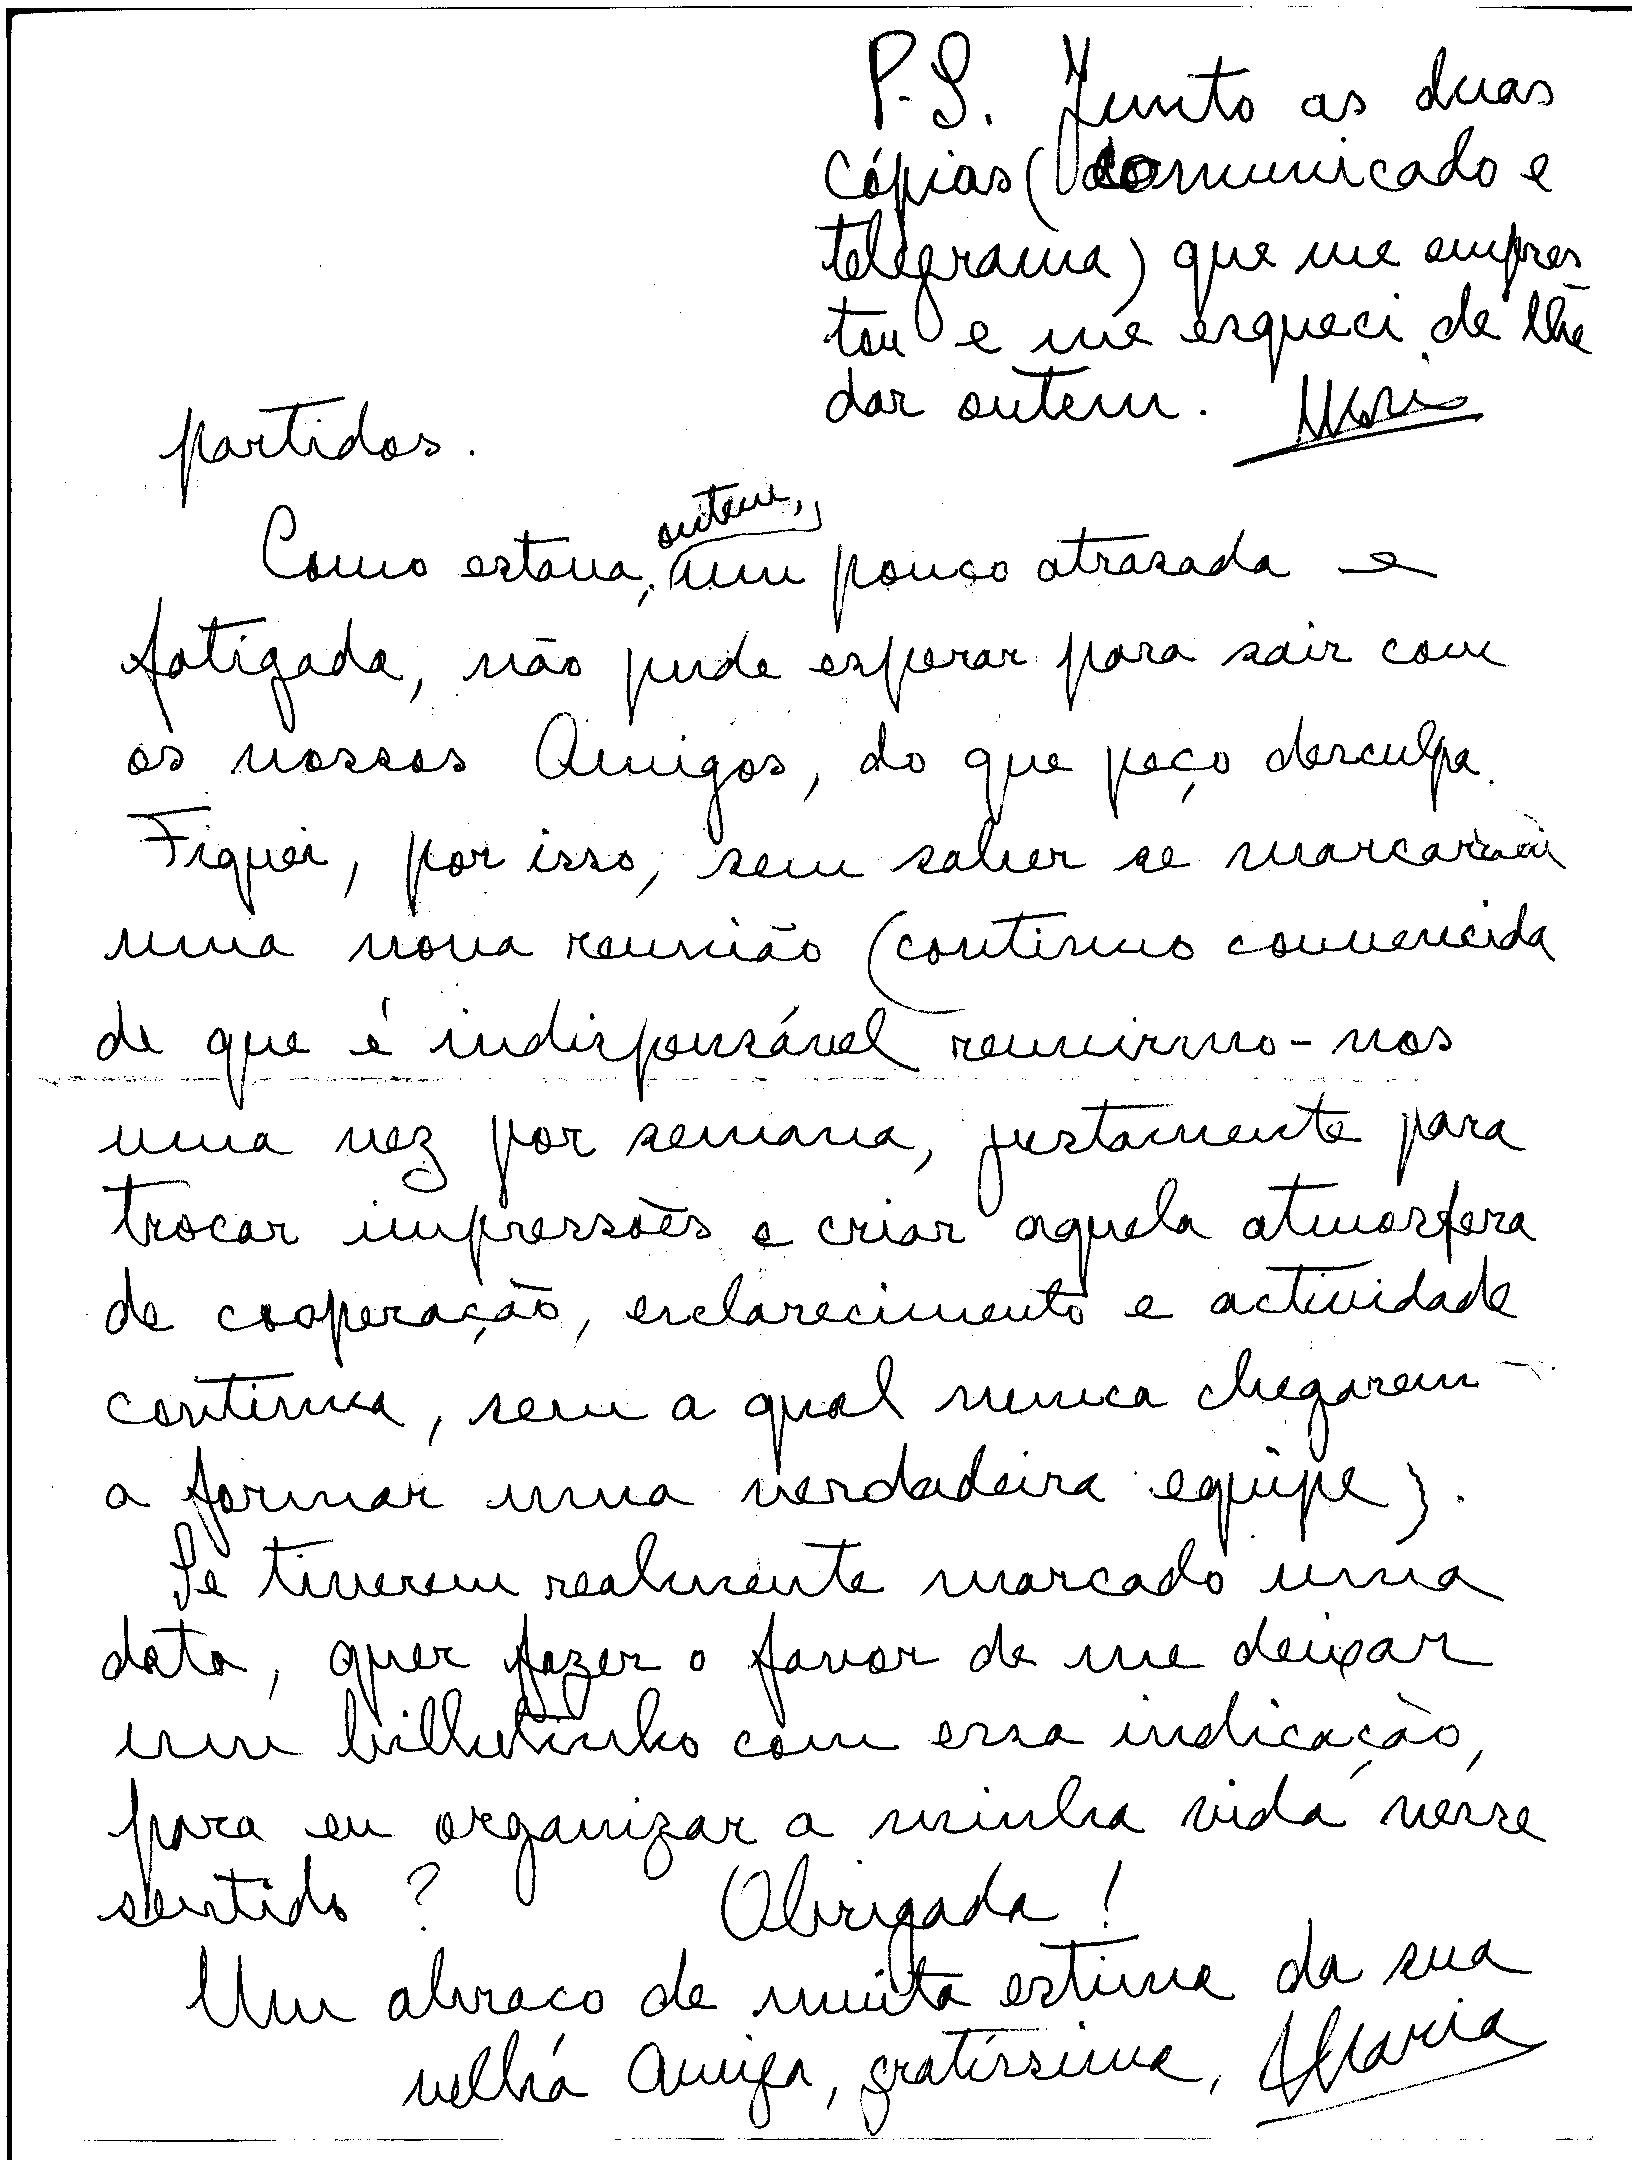 P.S. Junto as duas
cópias (comunicado e
telegrama) que me empres
tou e me esqueci de lhe
dar ontem.
partidos.
Como estava, ontem, um pouco atrasada e
fatigada, não pude esperar para sair com
os nossos Amigos, do que peço desculpa.
Fiquei, por isso, sem saber se marcaram
uma nova reunião (continuo convencida
de que é indispensável reunirmo-nos
uma vez por semana, justamente para
trocar impressões e criar aquela atmosfera
de cooperação, esclarecimento e actividade
contínua, sem a qual nunca chegarem
a formar uma verdadeira equipe).
Se tiverem realmente marcado uma
data, quer fazer o favor de me deixar
um bilhetinho com essa indicação,
para eu organizar a minha vida nesse
sentido? Obrigada!
Um abraço de muita estima da sua
velha Amiga, gratíssima, Maria